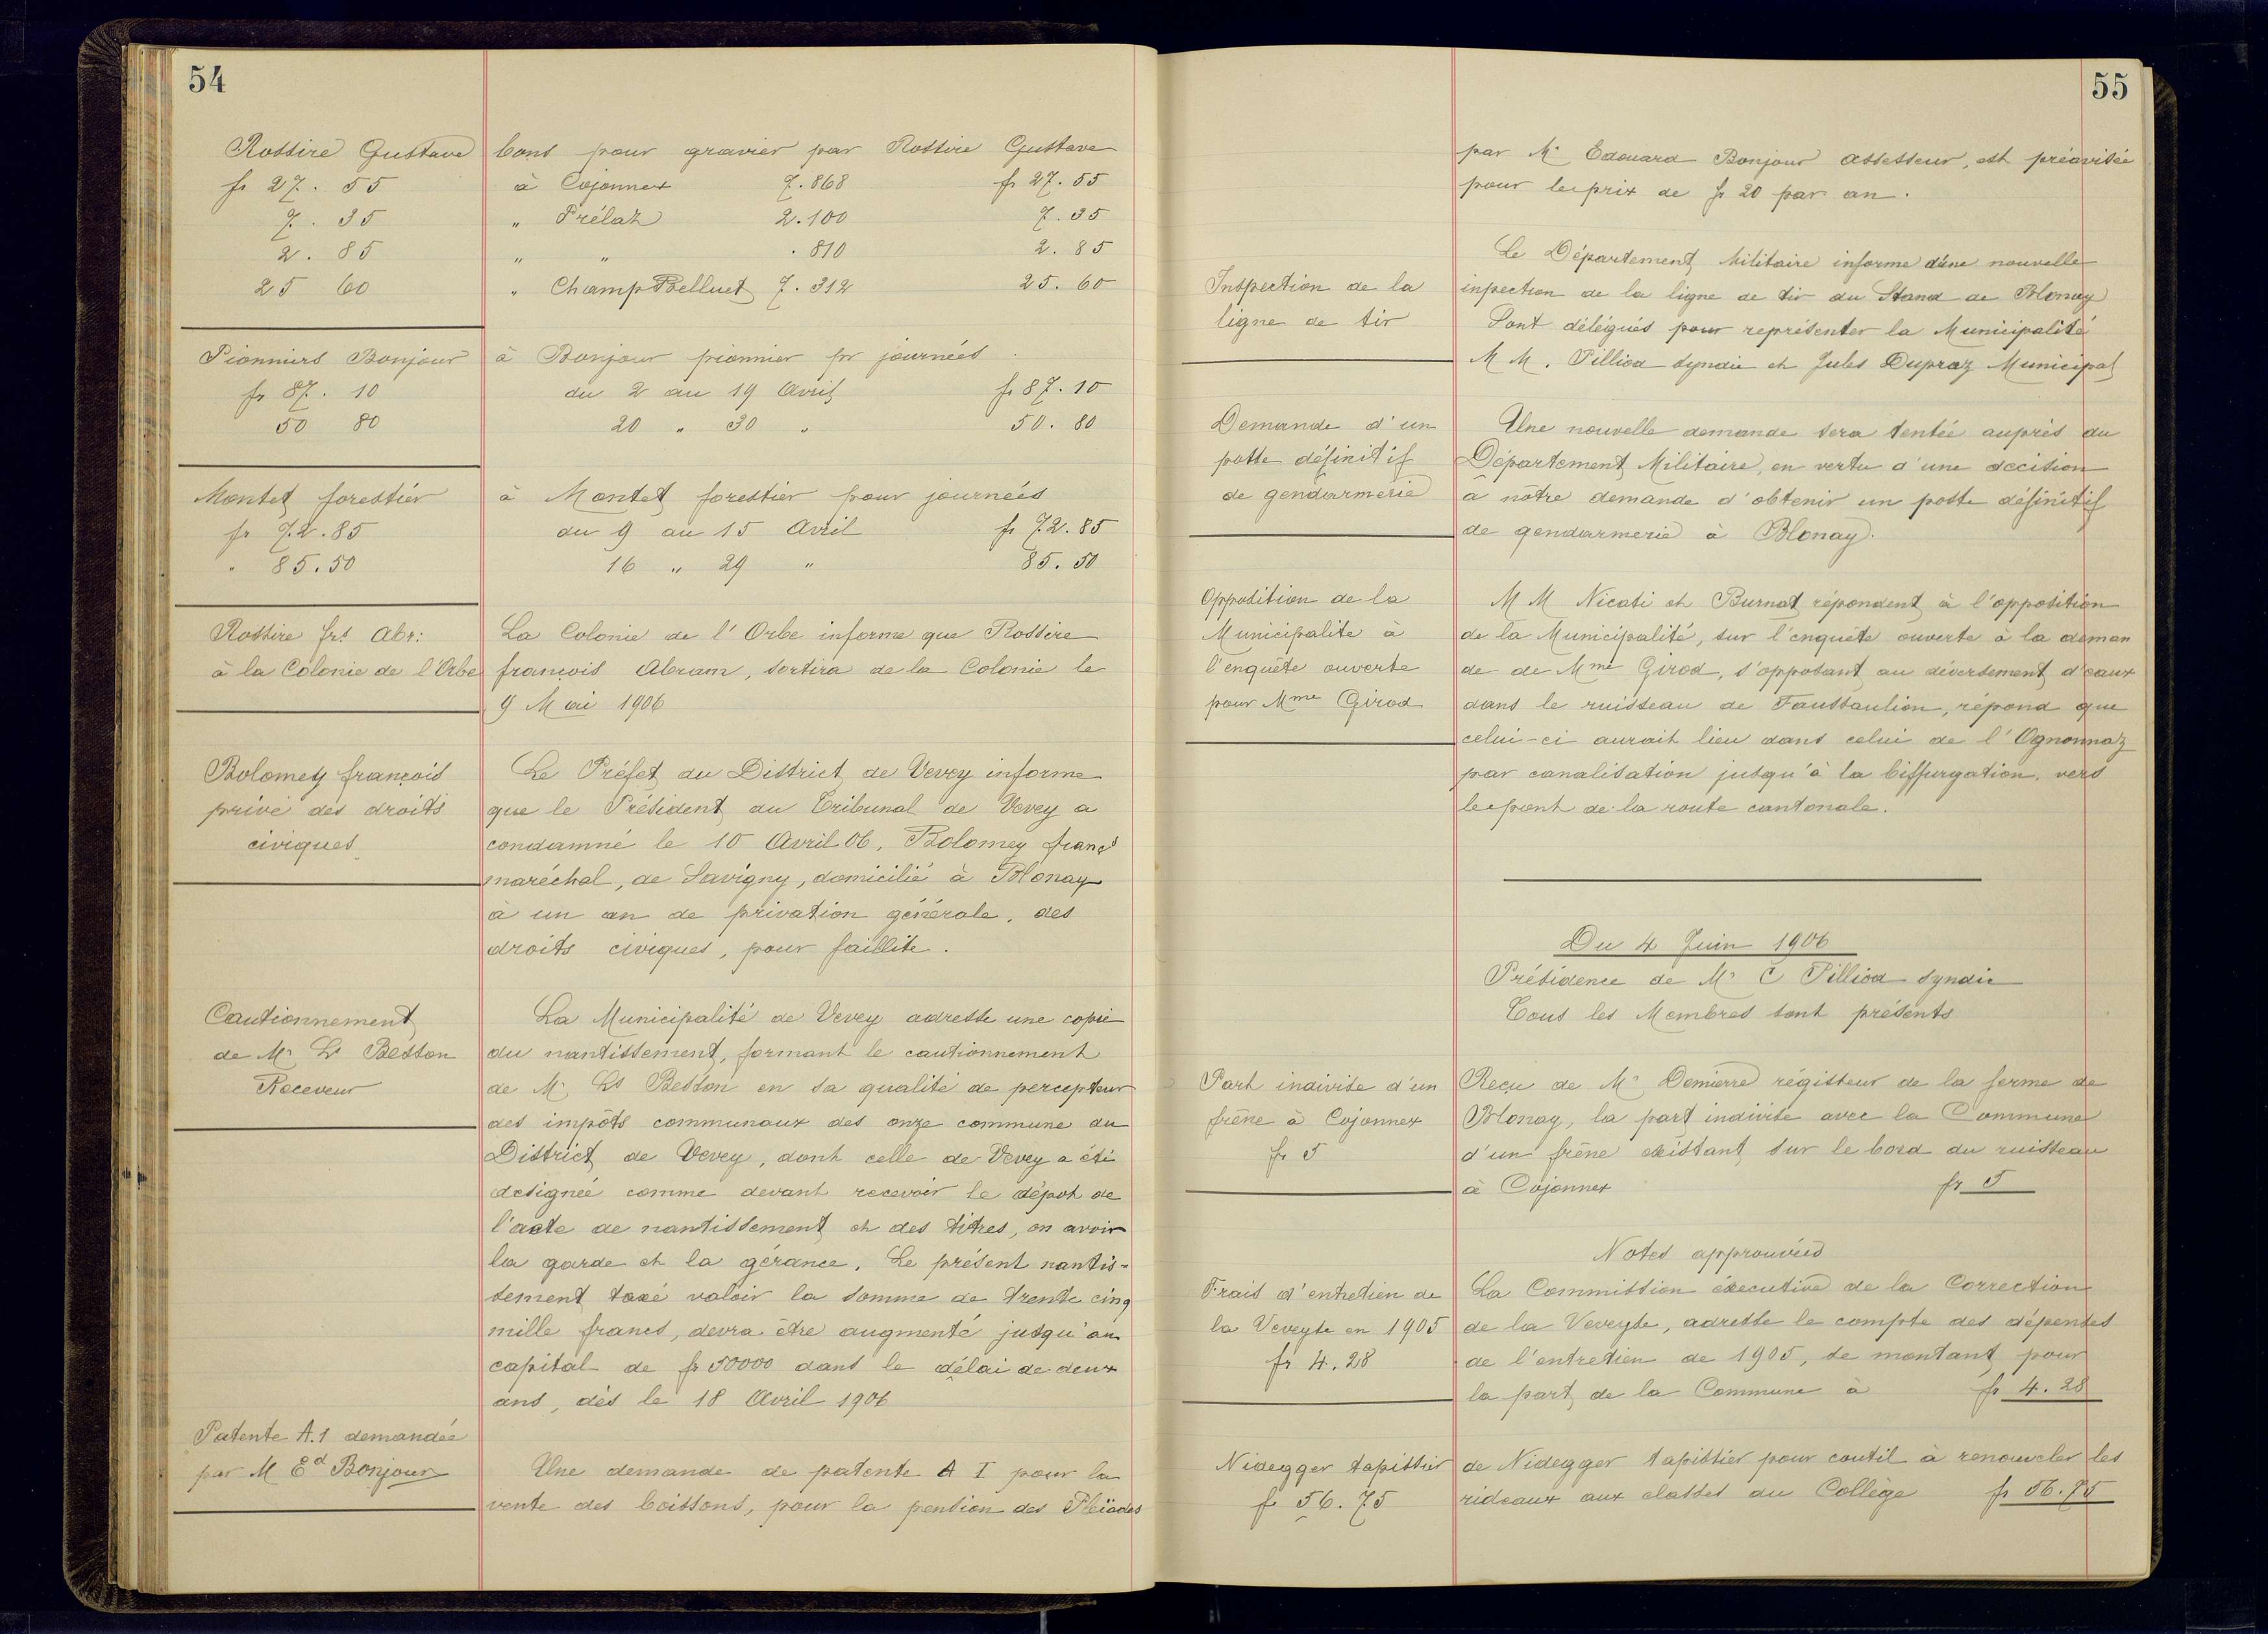 54
Rossire Gustave
fr 27. 55
7. 35
2. 85
25 60
bons pour gravier par Rossire Gustave
à Cojonnex 7.868 fr 27.55
" Prélaz 2.100 7.35
" " .810 2.85
" Champ Belluet 7.312 25.60
Pionniers Bonjour
fr 87. 10
50 80
à Bonjour pionnier pr journées
du 2 au 19 Avril fr 87.10
20 " 30 " 50.80
Montet forestier
fr 72.85
" 85.50
à Montet forestier pour journées
du 9 au 15 Avril fr 72.85
16 " 29 " 85.50
Rossire frs Abr:
à la Colonie de l'Orbe
La Colonie de l'Orbe informe que Rossire
françois Abram, sortira de la Colonie le
9 Mai 1906
Bolomey françois
privé des droits
civiques
Le Préfet du District de Vevey informe
que le Président du Tribunal de Vevey a
condamné le 10 Avril 06, Bolomey françs
maréchal, de Savigny, domicilié à Blonay
à un an de privation générale, des
droits civiques, pour faillite.
Cautionnement
de Mr Ls Besson
Receveur
La Municipalité de Vevey adresse une copie
du nantissement, formant le cautionnement
de Mr Ls Besson en sa qualité de percepteur
des impôts communaux des onze commune du
District de Vevey, dont celle de Vevey a été
designée comme devant recevoir le dépot de
l'acte de nantissement et des titres, en avoir
la garde et la gérance. Le présent nantis-
sement taxé valoir la somme de trente cinq
mille francs, devra être augmenté jusqu'au
capital de fr 50000 dans le délai de deux
ans, dès le 18 Avril 1906
Patente A.1 demandée
par M Ed Bonjour
Une demande de patente A I pour la
vente des boissons, pour la pension des Pleïades
55
par Mr Edouard Bonjour assesseur, est préavisée
pour le prix de fr 20 par an.
Inspection de la
ligne de tir
Le Département Militaire informe d'une nouvelle
inpection de la ligne de tir du Stand de Blonay
Sont délégués pour représenter la Municipalité
MM. Pilliod syndic et Jules Dupraz Municipal
Demande d'un
poste définitif
de gendarmerie
Une nouvelle demande sera tentée auprès du
Département Militaire, en vertu d'une decision
à nôtre demande d'obtenir un poste définitif
de gendarmerie à Blonay.
Opposition de la
Municipalite à
l'enquête ouverte
pour Mme Girod
MM Nicati et Burnat répondent à l'opposition
de la Municipalité, sur l'enquête ouverte à la deman
de de Mme Girod, s'opposant au déversement d'eaux
dans le ruisseau de Faussaulion, répond que
celui-ci aurait lieu dans celui de l'Ognonnaz
par canalisation jusqu'à la biffurgation, vers
le pont de la route cantonale.
Du 4 Juin 1906
Présidence de Mr C Pilliod syndic
Tous les Membres sont présents
Part indivise d'un
frêne à Cojonnex
fr 5
Reçu de Mr Demierre régisseur de la ferme de
Blonay, la part indivise avec la Commune
d'un frêne existant sur le bord du ruisseau
à Cojonnex fr 5
Notes approuvées
Frais d'entretien de
la Veveyse en 1905
fr 4.28
La Commission éxecutive de la Correction
de la Veveyse, adresse le compte des dépenses
de l'entretien de 1905, se montant pour
la part de la Commune à fr 4.28
Nidegger tapissier
fr 56.75
de Nidegger tapissier pour coutil à renouveler les
rideaux aux classes du Collège fr 56.75